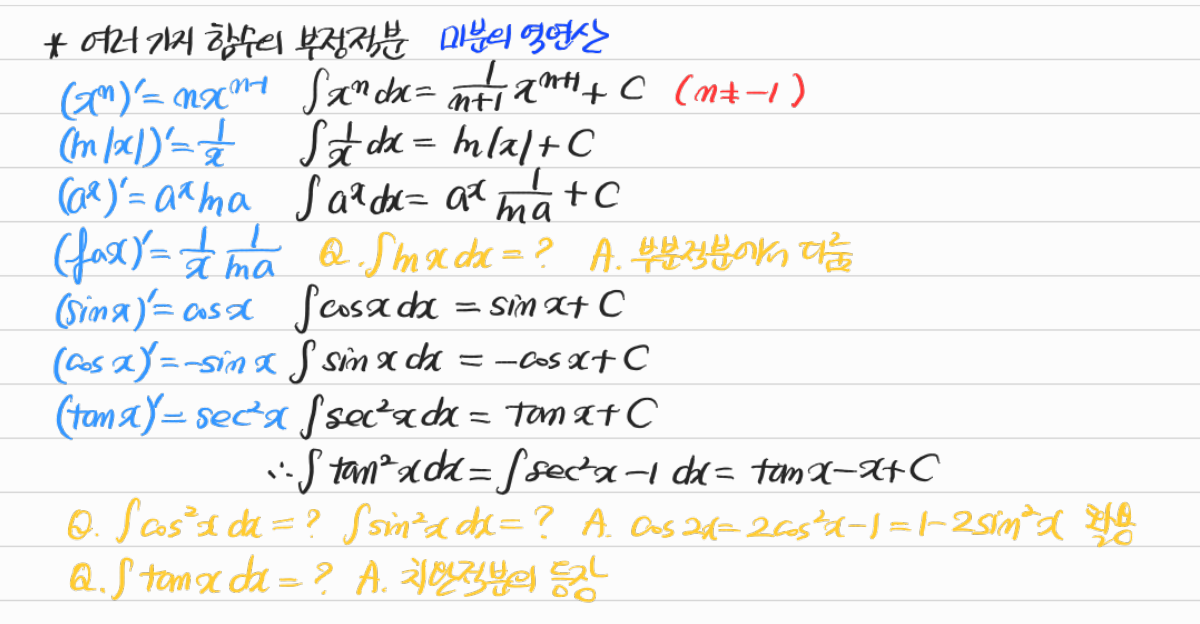 * 여러 가지 함수의 부정적분 미분의 역연산
(xⁿ)′ = nxⁿ⁻¹ ∫xⁿdx = 1/(n+1) xⁿ⁺¹ + C (n≠-1)
(ln|x|)′ = 1/x ∫1/x dx = ln|x| + C
(aˣ)′ = aˣ ln a ∫aˣdx = aˣ 1/(ln a) + C
(fax)′ = 1/x 1/(ln a) Q. ∫ln x dx = ? A. 부분적분에서 다룸
(sin x)′ = cos x ∫cos x dx = sin x + C
(cos x)′ = -sin x ∫sin x dx = -cos x + C
(tan x)′ = sec²x ∫sec²x dx = tan x + C
∴ ∫tan²x dx = ∫sec²x - 1 dx = tan x - x + C
Q. ∫cos²x dx = ? ∫sin²x dx = ? A. cos 2x = 2cos²x - 1 = 1 - 2sin²x 활용
Q. ∫tan x dx = ? A. 치환적분의 등장